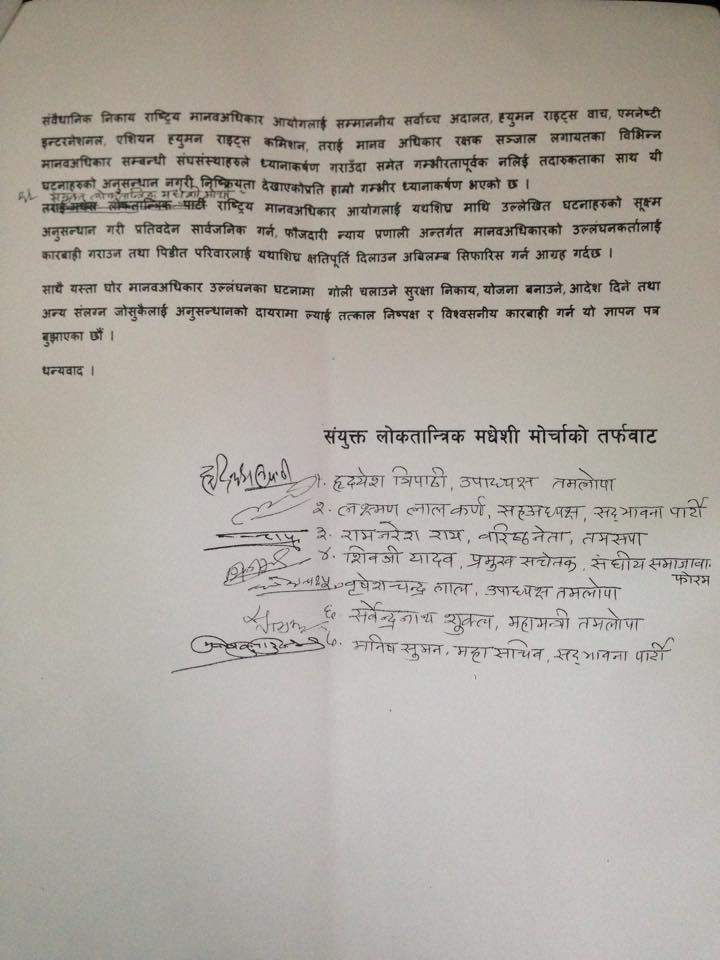 संवैधानिक निकाय राष्ट्रिय मानवअधिकार आयोगलाई सम्माननीय सर्वोच्च अदालत, ह्युमन राइट्स वाच, एमनेष्टी
इन्टरनेशनल, एशियन ह्युमन राइट्स कमिशन, तराई मानव अधिकार रक्षक सञ्जाल लगायतका विभिन्न
मानवअधिकार सम्बन्धी संघसंस्थाहरुले ध्यानाकर्षण गराउँदा समेत गम्भीरतापूर्वक नलिई तदारुकताका साथ यी
घटनाहरुको अनुसन्धान नगरी निष्क्रियता देखाएकोप्रति हाम्रो गम्भीर ध्यानाकर्षण भएको छ ।
संयुक्त लोकतान्त्रिक मधेशी मोर्चा
तराई-मधेस लोकतान्त्रिक पार्टी राष्ट्रिय मानवअधिकार आयोगलाई यथाशिघ्र माथि उल्लेखित घटनाहरुको सूक्ष्म
अनुसन्धान गरी प्रतिवदेन सार्वजनिक गर्न, फौजदारी न्याय प्रणाली अन्तर्गत मानवअधिकारको उल्लंघनकर्तालाई
कारबाही गराउन तथा पिडीत परिवारलाई यथाशिघ्र क्षतिपूर्ति दिलाउन अबिलम्ब सिफारिस गर्न आग्रह गर्दछ ।
साथै यस्ता घोर मानवअधिकार उल्लंघनका घटनामा गोली चलाउने सुरक्षा निकाय, योजना बनाउने, आदेश दिने तथा
अन्य संलग्न जोसुकैलाई अनुसन्धानको दायरामा ल्याई तत्काल निष्पक्ष र विश्वसनीय कारबाही गर्न यो ज्ञापन पत्र
बुझाएका छौं ।
धन्यवाद ।
संयुक्त लोकतान्त्रिक मधेशी मोर्चाको तर्फवाट
१. हृदयेश त्रिपाठी, उपाध्यक्ष तमलोपा
२. लक्ष्मण लाल कर्ण, सहअध्यक्ष, सद्भावना पार्टी
३. रामनरेश राय, वरिष्ठ नेता, तमसपा
४. शिवजी यादव, प्रमुख सचेतक, संघीय समाजवा.
फोरम
वृषेश चन्द्र लाल, उपाध्यक्ष तमलोपा
६. सर्वेन्द्रनाथ शुक्ल, महामन्त्री तमलोपा
७. मनिष सुमन, महासचिव, सद्भावना पार्टी